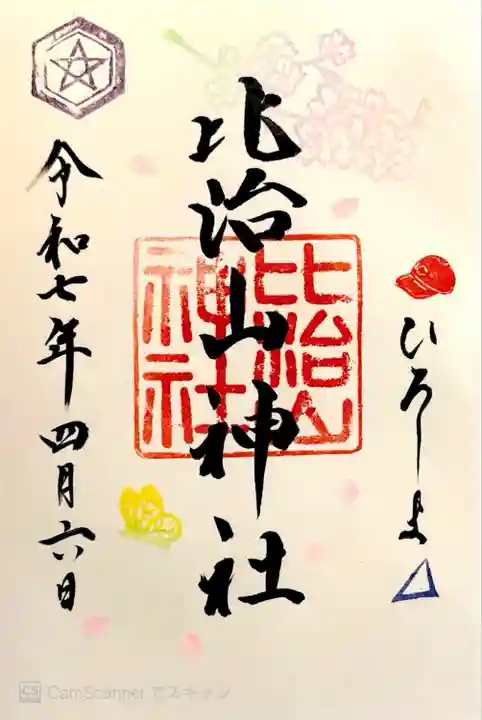 ひろしま
C
比治山神社
比治山
神社
令和七年 四月六日
CS CamScanner でスキャン